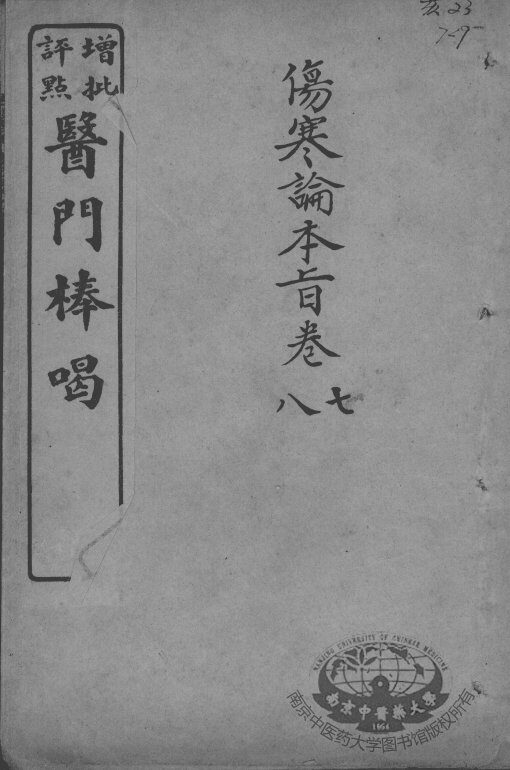 增批
評點
醫門棒喝
傷寒論本旨卷
七
八
7-9
NANJING UNIVERSITY OF CHINESE MEDICINE
南京中醫藥大學
1954
南京中医药大学图书馆版权所有